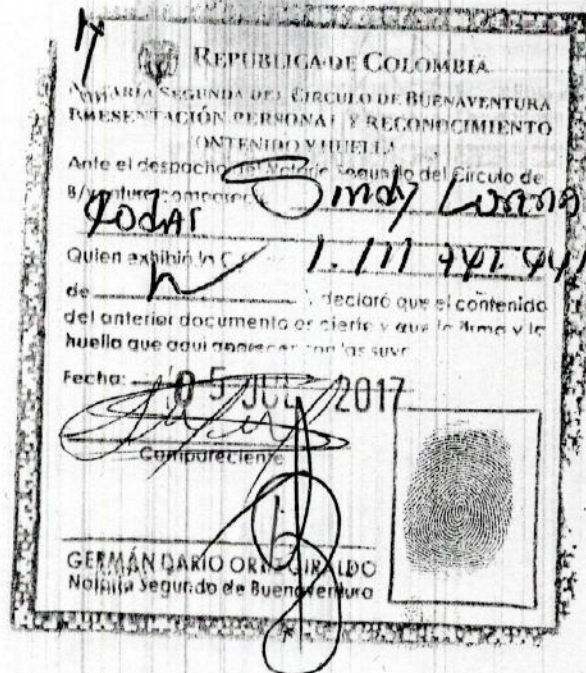 REPUBLICA DE COLOMBIA
NOTARIA SEGUNDA DEL CIRCULO DE BUENAVENTURA
PRESENTACIÓN PERSONAL Y RECONOCIMIENTO
CONTENIDO Y HUELLA
Ante el despacho del Notario Segundo del Circulo de
B/ventura compareció Sindy Lorena
Rodas
Quien exhibió la C.C. 1.111
de , declaró que el contenido
del anterior documento es cierto y que la firma y la
huella que aqui aparecen son las suyas
Fecha: 05 JUL 2017
Compareciente
GERMÁN DARIO GIRALDO
Notario Segundo de Buenaventura